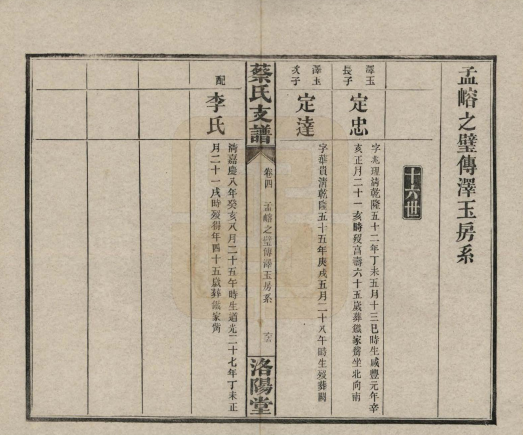 孟嵱之璧傳澤玉房系
十六世
澤玉
長子
定忠
字兆理清乾隆五十二年丁未五月十三巳時生咸豐元年辛
亥正月二十一亥時歿享壽六十五歲葬鐵家嵛坐北向南
澤玉
次子
定達
字華貴清乾隆五十五年庚戌五月二十八午時生歿葬闕
蔡氏支譜
卷四
孟嵱之璧傳澤玉房系
洛陽堂
配
李氏
清嘉慶八年癸亥八月二十五午時生道光二十七年丁未正
月二十一戌時歿得年四十五歲葬鐵家嵛